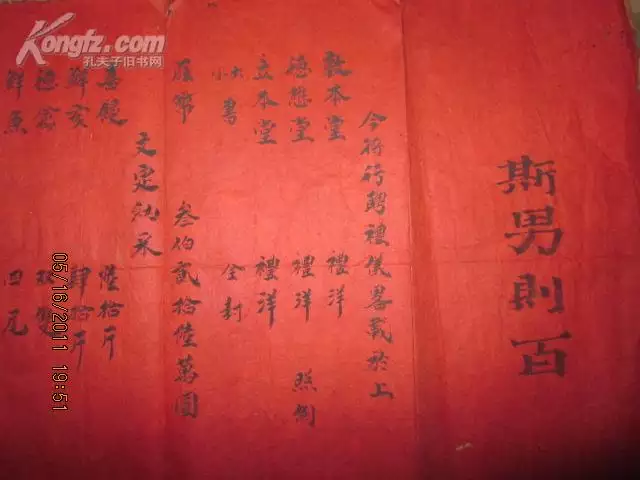 斯男則百
今將行聘禮儀畧載於上
敦本堂 禮洋
德懋堂 禮洋 照例
立本堂 禮洋
大小書 全封
文定納采
叁伯貳拾陸萬圓
喜餅 陸拾斤
鮮亥 肆拾斤
德禽 雙
鮮魚 四尾
05/16/2011 19:51
Kongfz.com
孔夫子旧书网